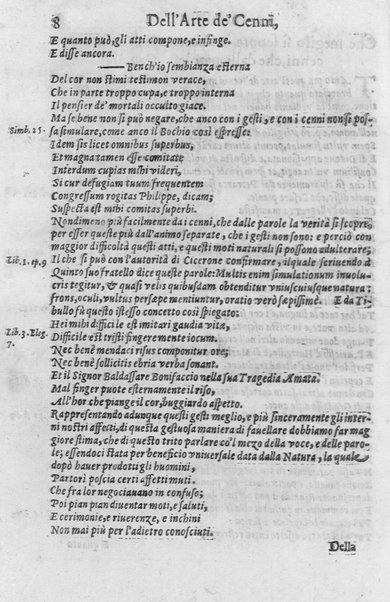 8 Dell'Arte de' Cenni,
E quanto può, gli atti compone, e infinge.
E disse ancora.
—Bench'io sembianza esterna
Del cor non stimi testimon verace,
Che in parte troppo cupa, e troppo interna
Il pensier de' mortali occulto giace.
Ma se bene non si può negare, che anco con i gesti, e con i cenni non si pos-
Simb. 25. sa simulare, come anco il Bochio così espresse:
Idem sis licet omnibus superbus,
Et magna tamen esse comitate
Interdum cupias mihi videri,
Si cur defugiam tuum frequentem
Congressum rogitas Philippe, dicam;
Suspecta est mihi comitas superbi.
Nondimeno più facilmente dai cenni, che dalle parole la verità si scopre,
per esser queste più dall'animo separate, che i gesti non sono: e perciò con
maggior difficoltà questi atti, e questi moti naturali si possono adulterare;
Lib. 1. ep. 9 Il che si può con l'autorità di Cicerone confirmare, ilquale scriuendo à
Quinto suo fratello dice queste parole: Multis enim simulationum inuolu-
cris tegitur, & quasi velis quibusdam obtenditur vniuscuiusque natura:
frons, oculi, vultus persæpe mentiuntur, oratio verò sæpissimè. E da Ti-
bullo fù questo istesso concetto così spiegato:
Lib. 3. Eleg. Hei mihi difficile est imitari gaudia vitæ,
7. Difficile est tristi fingere mente iocum.
Nec benè mendaci risus componitur ore;
Nec benè sollicitis ebria verba sonant.
Et il Signor Baldassare Bonifaccio nella sua Tragedia Amata.
Mal finger puote esternamente il riso,
All'hor che piange il cor, buggiardo aspetto.
Rappresentando adunque questi gesti meglio, e più sinceramente gli inter-
ni nostri affecti, di questa gestuosa maniera di fauellare dobbiamo far mag
giore stima, che di questo trito parlare co'l mezo della voce, e delle paro-
le; essendoci stata per beneficio vniuersale data dalla Natura, la quale
dopò hauer prodotti gli huomini,
Partorì poscia certi affetti muti.
Che fra lor negociauano in confuso;
Poi pian pian diuentar moti, e saluti,
E cerimonie, e riuerenze, e inchini
Non mai più per l'adietro conosciuti.
Della